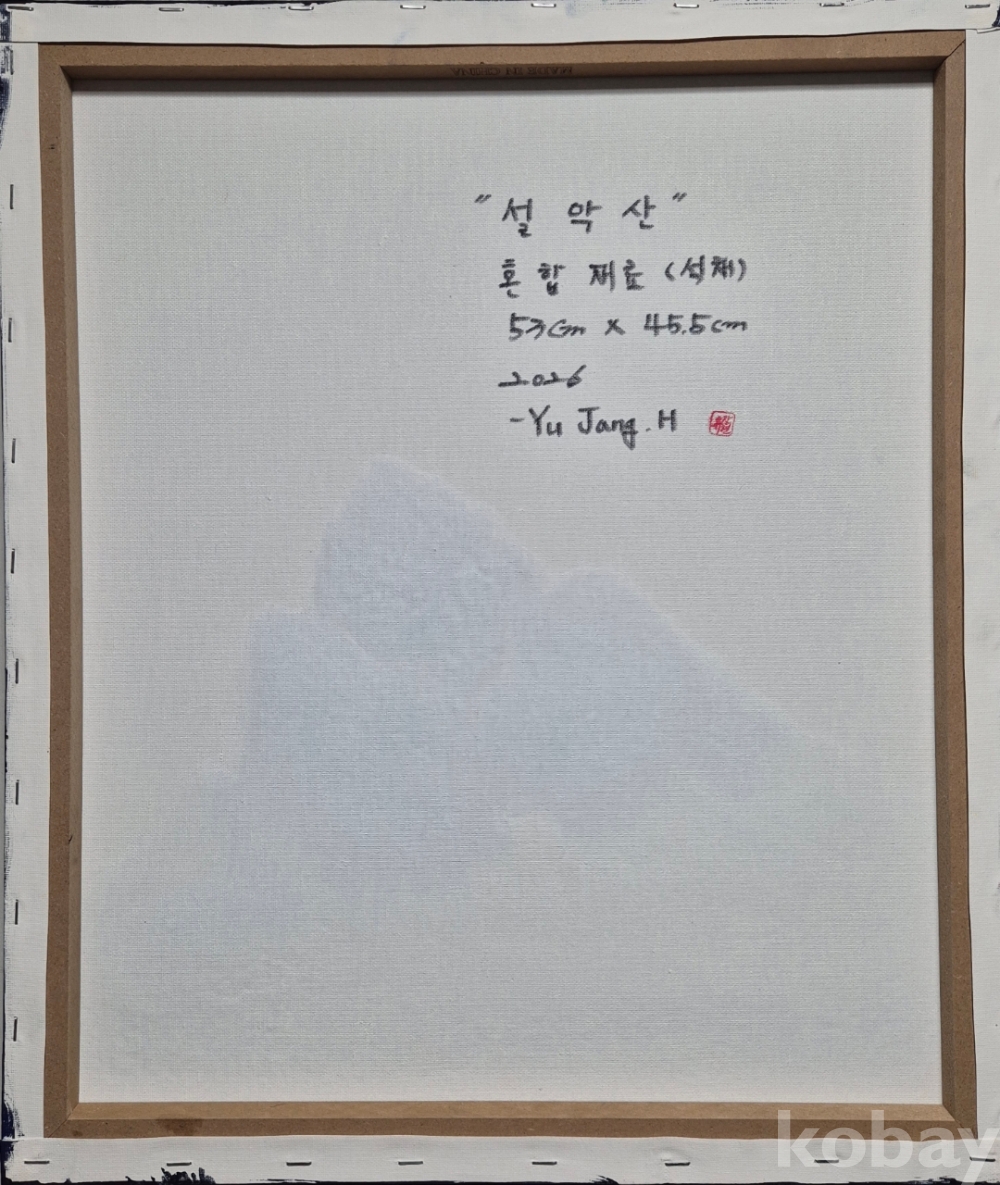 MADE IN CHINA
"설악산"
혼합재료(석채)
53cm x 45.5cm
2026
-Yu Jang.H
kobay